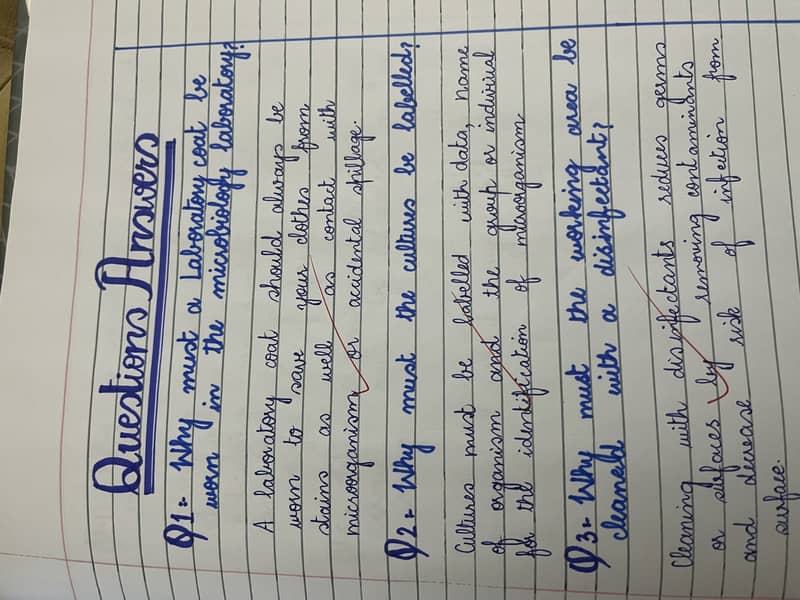 Questions Answers
Q1:- Why must a Laboratory coat be
worn in the microbiology laboratory?
A laboratory coat should always be
worn to save your clothes from
stains as well as contact with
microorganism or accidental spillage.
Q2:- Why must the cultures be labelled?
Cultures must be labelled with data, name
of organism and the group or individual
for the identification of microorganism
Q3:- Why must the working area be
cleaneld with a disinfectant?
Cleaning with disinfectants reduces germs
or surfaces by removing contaminants
and decrease risk of infection from
surface.